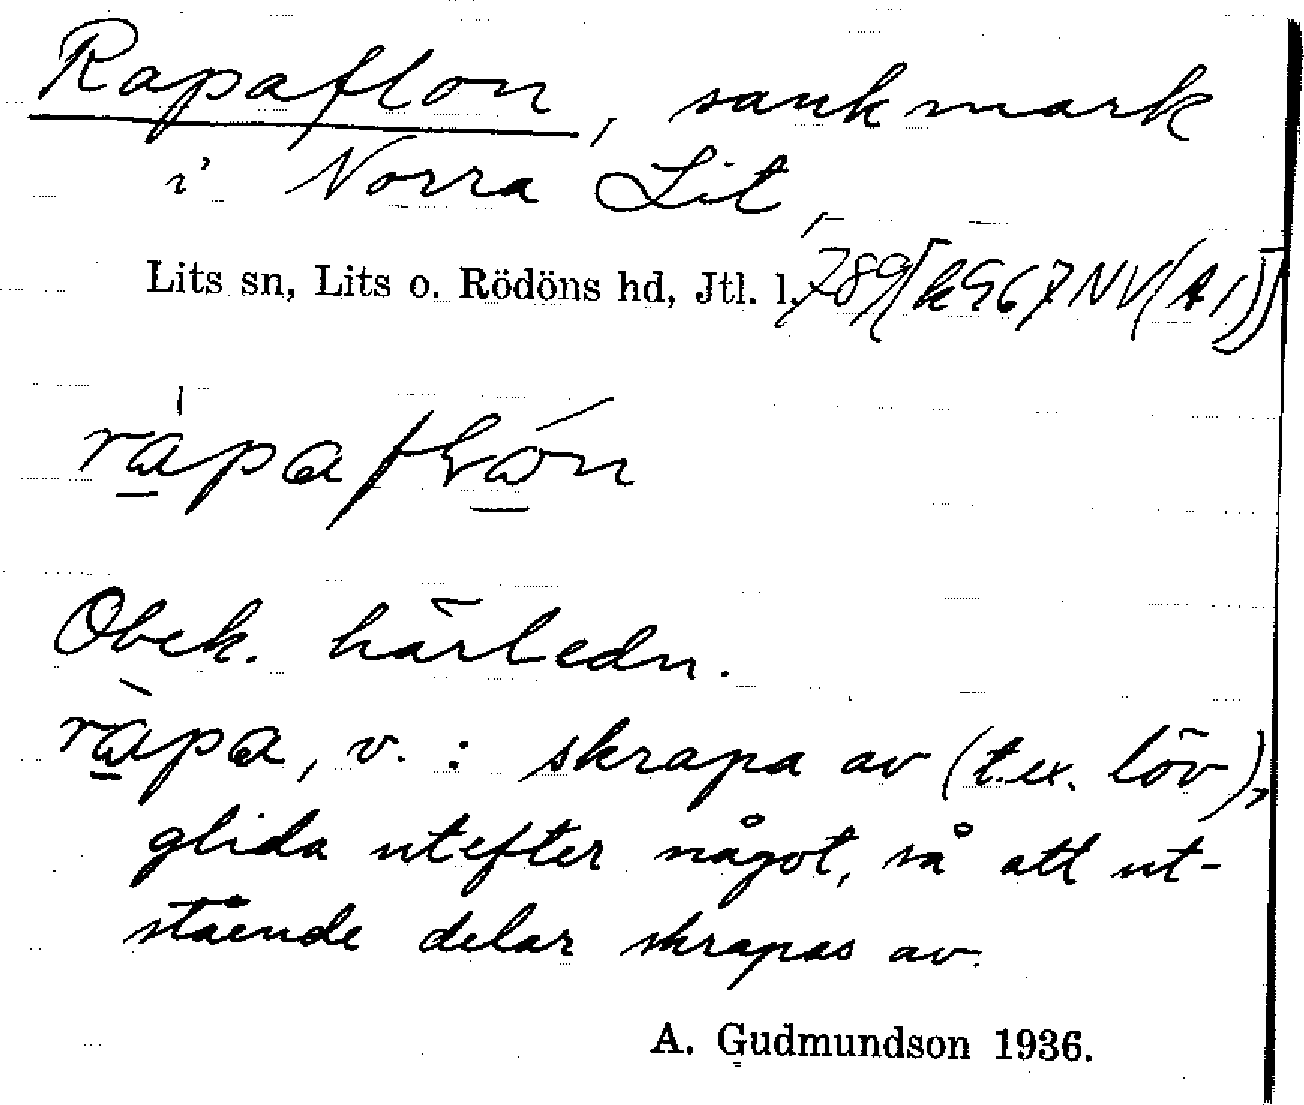 Rapaflon, sankmark
i Norra Lit,
Lits sn, Lits o. Rödöns hd, Jtl. l. 789[k967NV(A1)]
Obek. härledn.
ràpa, v. : skrapa av (t.ex. löv),
glida utefter något, så att ut-
stående delar skrapas av.
A. Gudmundson 1936.